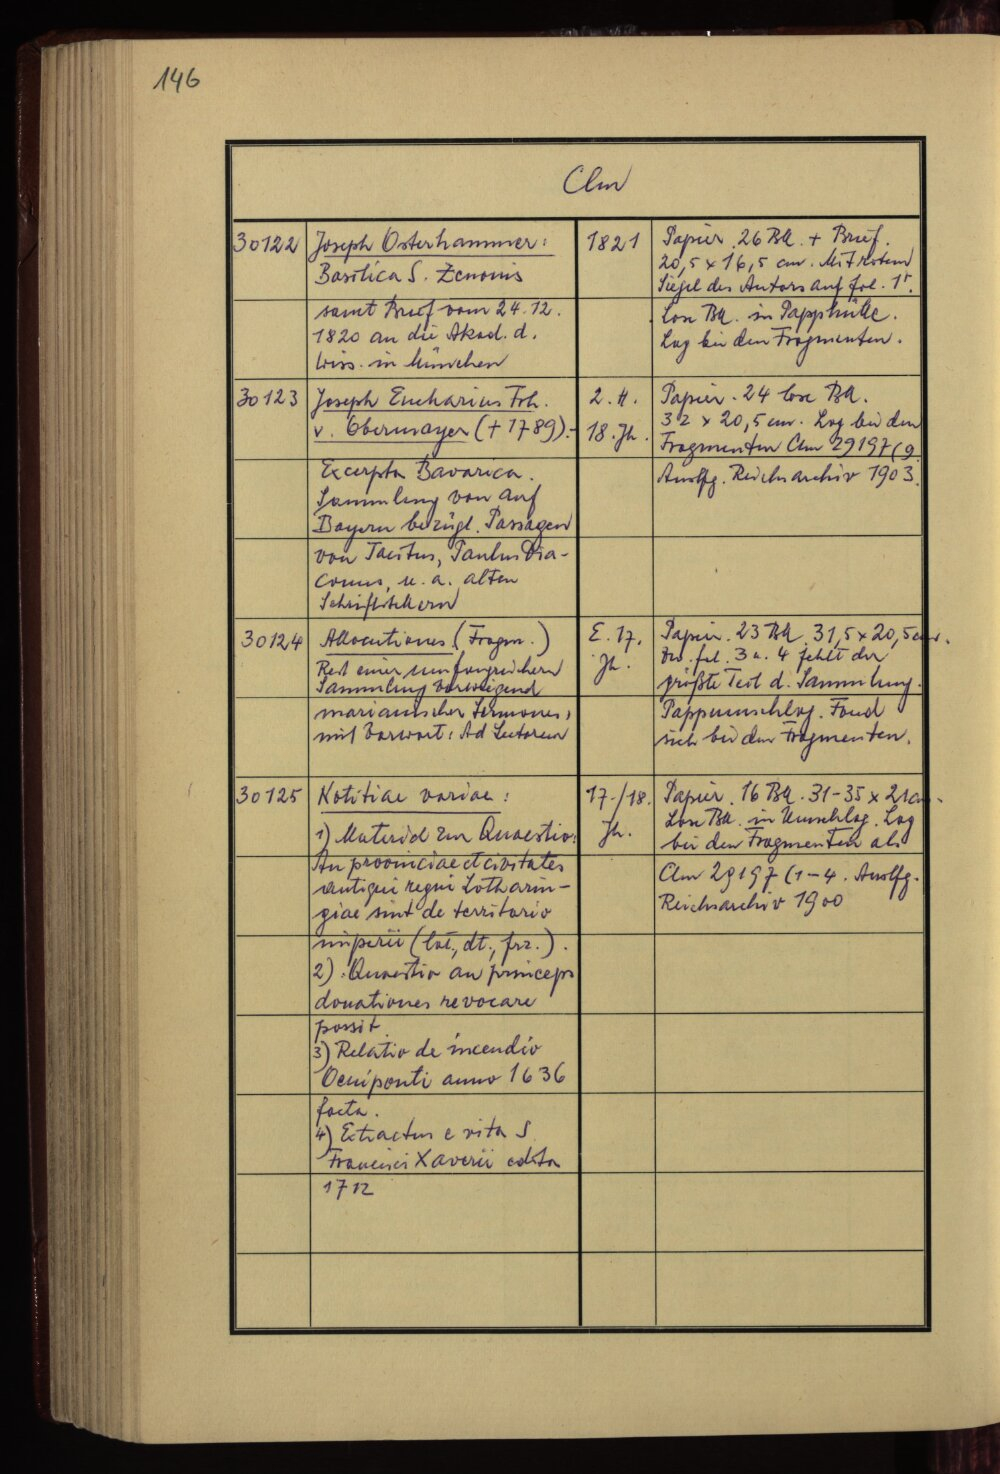 146
Clm
30122
Joseph Osterhammer:
Basilica S. Zenonis
samt Brief vom 24.12.
1820 an die Akad. d.
Wiss. in München
1821
Papier. 26 Bll. + Brief.
20,5 x 16,5 cm. Mit rotem
Siegel des Autors auf fol. 1r.
Lose Bll. in Papphülle.
Lag bei den Fragmenten.
30123
Joseph Eucharius Frh.
v. Obermayer († 1789).-
Excerpta Bavarica.
Sammlung von auf
Bayern bezügl. Passagen
von Tacitus, Paulus Dia-
conus, u. a. alten
Schriftstellern
2. H.
18. Jh.
Papier. 24 lose Bll.
32 x 20,5 cm. Lag bei den
Fragmenten Clm 29197(9.
Auslfg. Reichsarchiv 1903.
30124
Allocutiones (Fragm.)
Rest einer umfangreichern
Sammlung vorwiegend
marianischer Sermones,
mit Vorwort: Ad Lectorem
E. 17.
Jh.
Papier. 23 Bll. 31,5 x 20,5 cm.
Zw. fol. 3 u. 4 fehlt der
größte Teil d. Sammlung.
Pappumschlag. Fand
sich bei den Fragmenten.
30125
Notitiae variae:
1) Material zur Quaestio:
An provinciae et civitates
antiqui regni Lotharin-
giae sint de territorio
imperii (lat., dt., frz.).
2). Quaestio an princeps
donationes revocare
possit
3) Relatio de incendio
Oeniponti anno 1636
facta.
4) Extractus e vita S.
Francisci Xaverii edita
1712
17./18.
Jh.
Papier. 16 Bll. 31-35 x 21 cm.
Lose Bll. in Umschlag. Lag
bei den Fragmenten als
Clm 29197 (1-4. Auslfg.
Reichsarchiv 1900